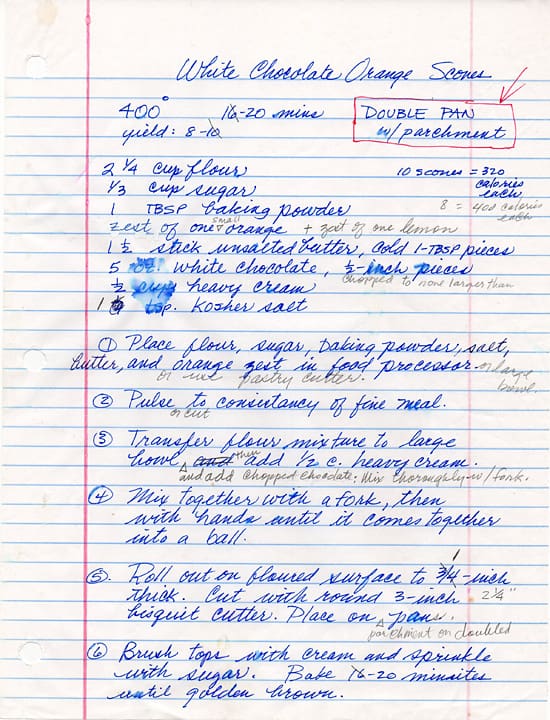 White Chocolate Orange Scones
400° 16-20 mins DOUBLE PAN
yield: 8-10 w/parchment
2 1/4 cup flour 10 scones = 320
1/3 cup sugar calories each
1 TBSP baking powder 8 = 400 calories each
zest of one small orange + zest of one lemon
1 1/2 stick unsalted butter, cold 1-TBSP pieces
5 oz. white chocolate, 1/2-inch pieces
chopped to none larger than
1/2 cup heavy cream
1 tsp. Kosher salt
① Place flour, sugar, baking powder, salt,
butter, and orange zest in food processor. or large bowl.
or use pastry cutter.
② Pulse to consistancy of fine meal.
or cut
③ Transfer flour mixture to large
bowl and then add 1/2 c. heavy cream.
and add chopped chocolate. Mix thoroughly w/fork.
④ Mix together with a fork, then
with hands until it comes together
into a ball.
⑤ Roll out on floured surface to 3/4 1-inch
thick. Cut with round 3-inch 2 1/4"
bisquit cutter. Place on pans.
parchment on doubled
⑥ Brush tops with cream and sprinkle
with sugar. Bake 16-20 minsites
until golden brown.